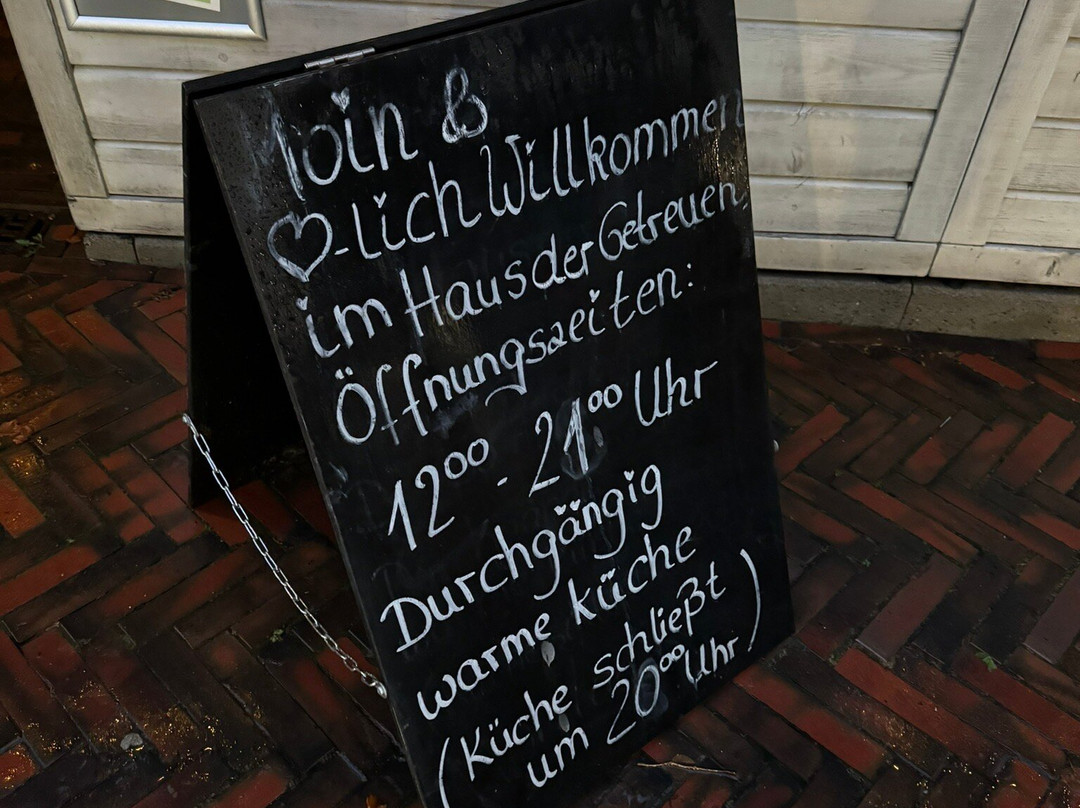 Moin &
♡-lich Willkommen
im Haus der Getreuen.
Öffnungszeiten:
12⁰⁰ - 21⁰⁰ Uhr
Durchgängig
warme küche
(Küche schließt
um 20⁰⁰ Uhr)